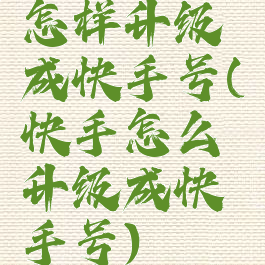 怎样升级
成快手号(
快手怎么
升级成快
手号)